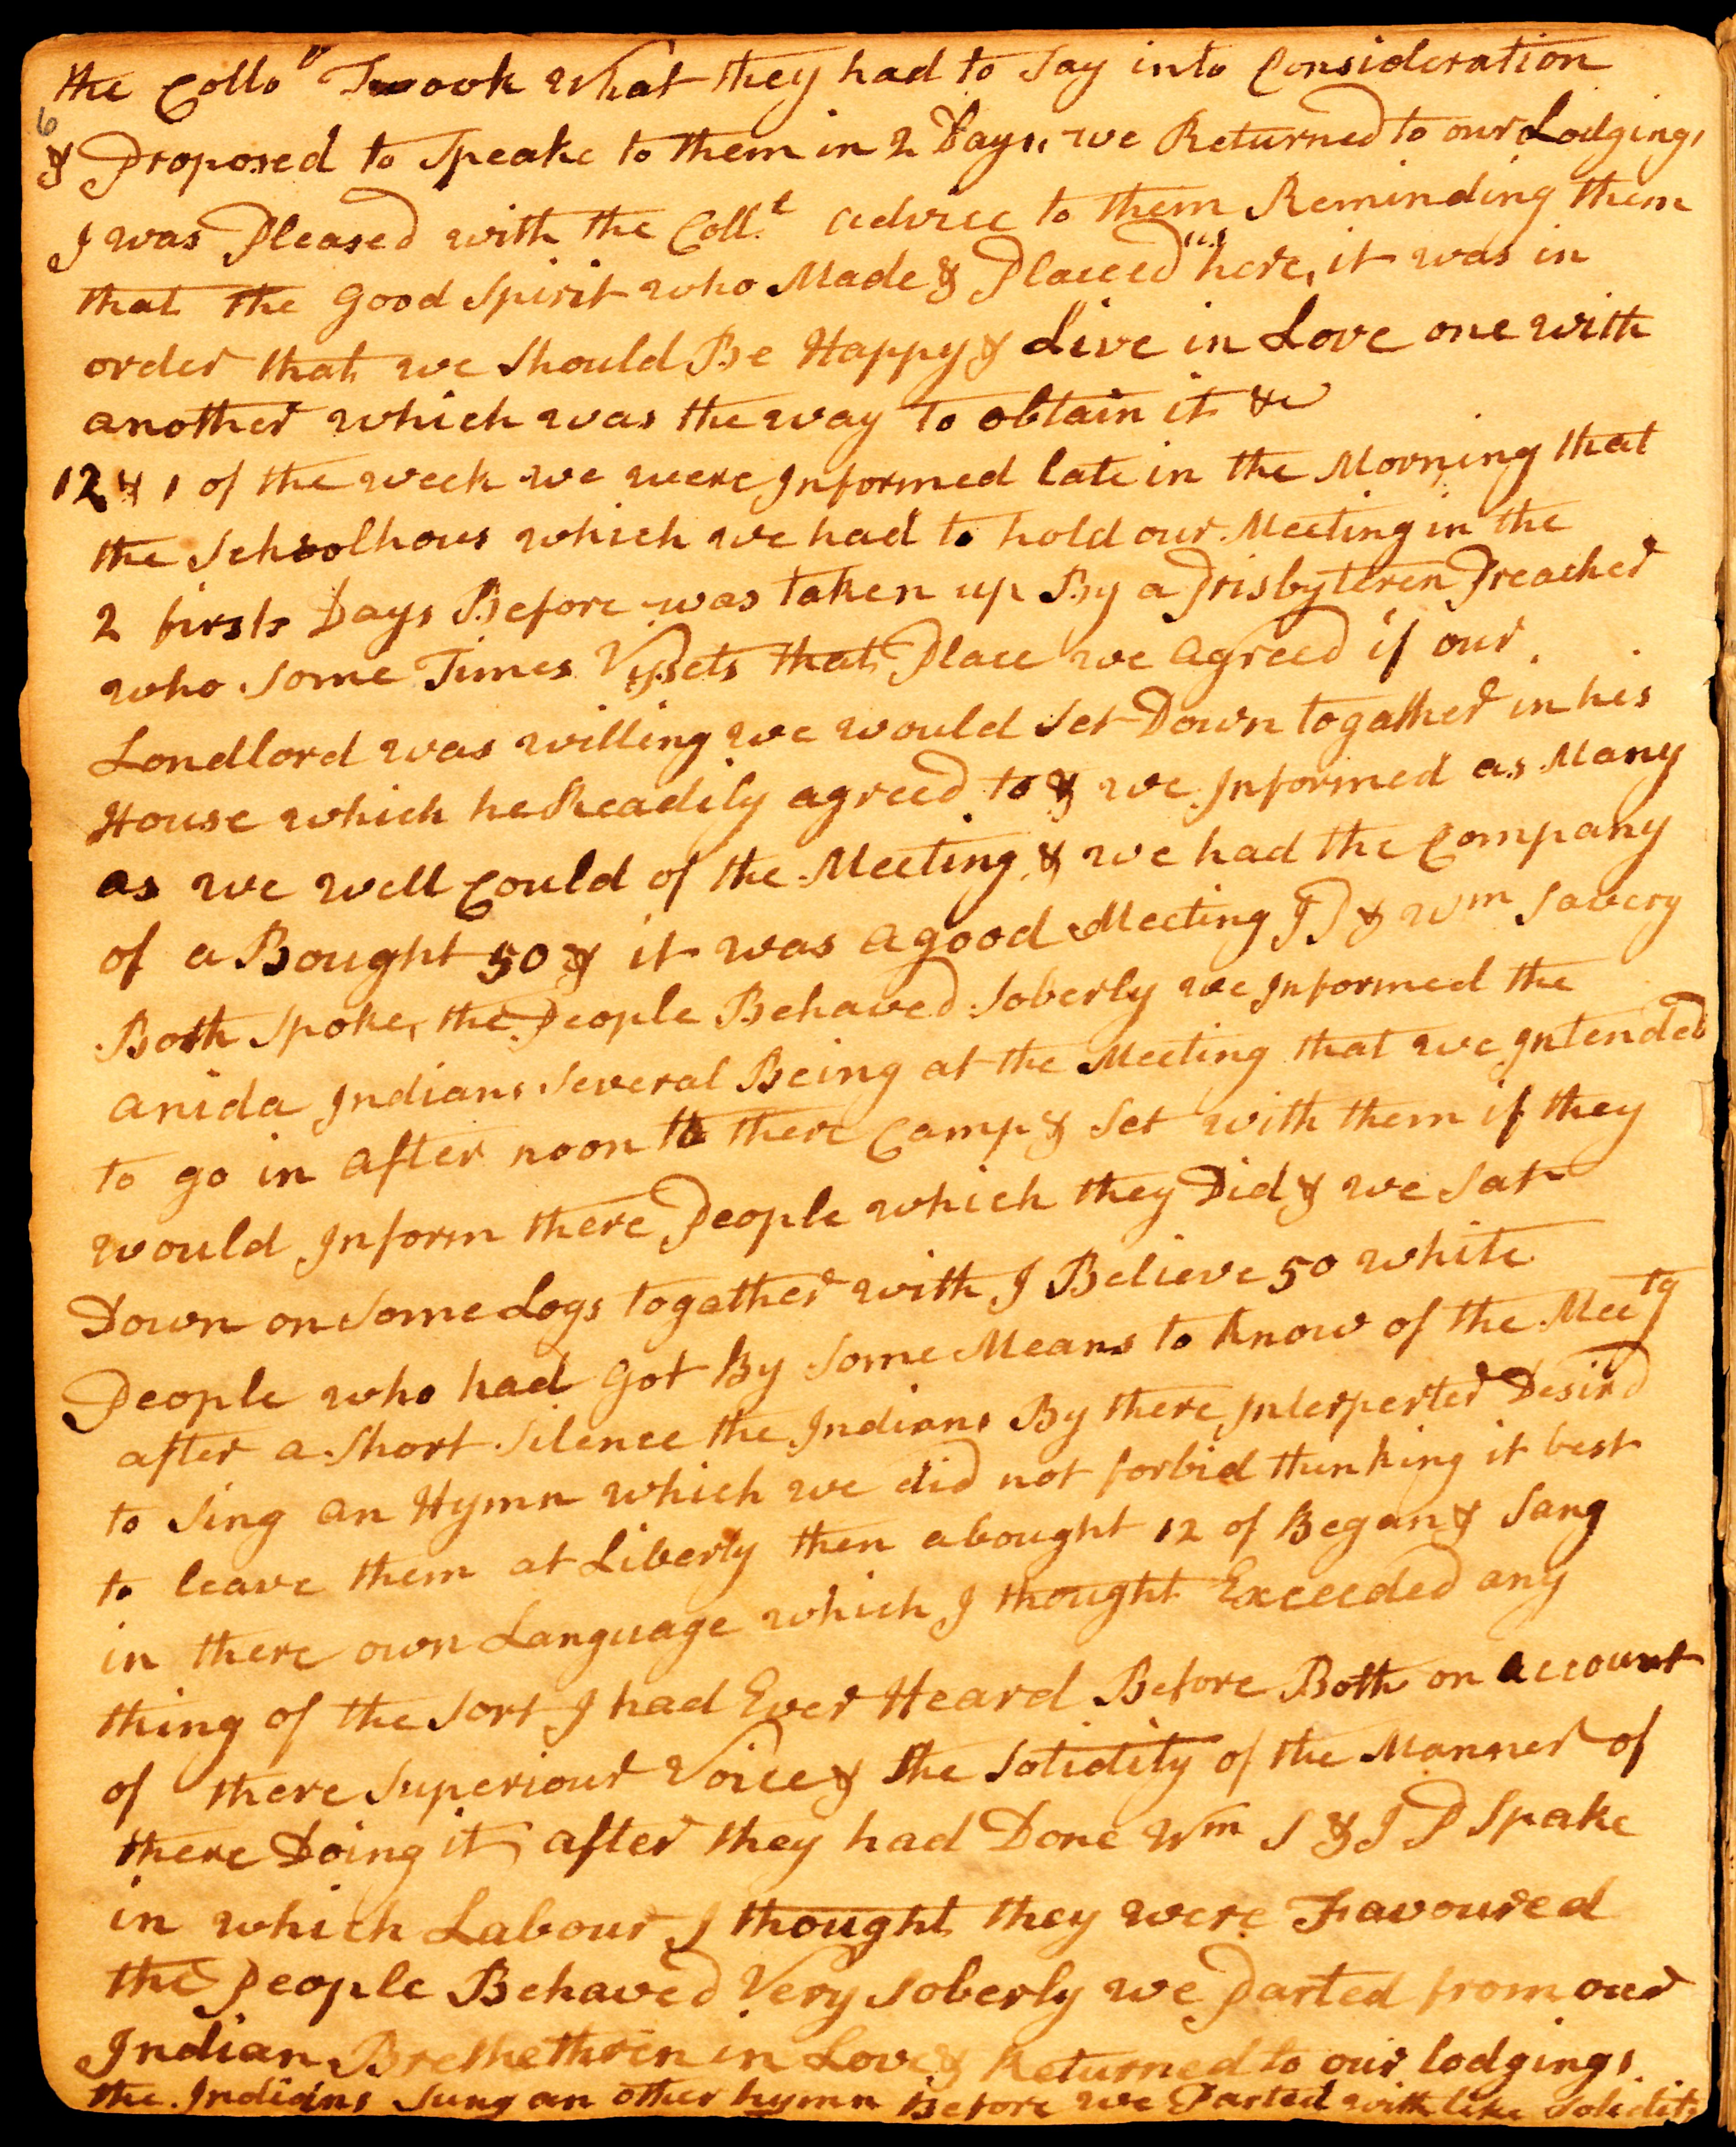 the Collo Took what they had to Say into Consideration
6
& Proposed to Speake to them in 2 Days, we Returned to our Lodgings
I was Pleased with the Coll. advice to them Reminding them
that the good Spirit who Made & Placed us here, it was in
order that we Should Be Happy & Live in Love one with
another which was the way To obtain it &c
12 & 1 of the week we were Informed late in the Morning that
the Schoolhous which we had to hold our Meeting in the
2 firsts Days Before was taken up By a Prisbyteren Preacher
who Some Times Vissets that Place we agreed if our
Londlord was willing we would Set Down togather in his
House which he Readily agreed to & we Informed as Many
as we well Could of the Meeting & we had the Company
of a Bought 50 & it was a good Meeting JP & Wm Savery
Both Spoke, the People Behaved Soberly we Informed the
anida Indians Several Being at the Meeting that we Intended
to go in after noon to there Camp & Set with them if they
would Inform there People which they Did & we Sat
Down on Some Logs togather with I Believe 50 white
People who had got By Some Means to know of the Meetg
after a Short Silence the Indians By there Interperter Desird
to Sing an Hymn which we did not forbid thinking it best
to leave them at Liberty then abought 12 of Began & Sang
in there own Language which I thought Exceeded any
thing of the Sort I had Ever Heard Before Both on account
of there Superiour Voice & the Solidity of the Manner of
there Doing it after they had Done Wm S & J P Spake
in which Labour I thought they were Favoured
the People Behaved Very Soberly we Parted from our
Indian Brethethren in Love & Returned to our lodgings.
the Indians Sung an other hymn Before we Parted with like Solidity